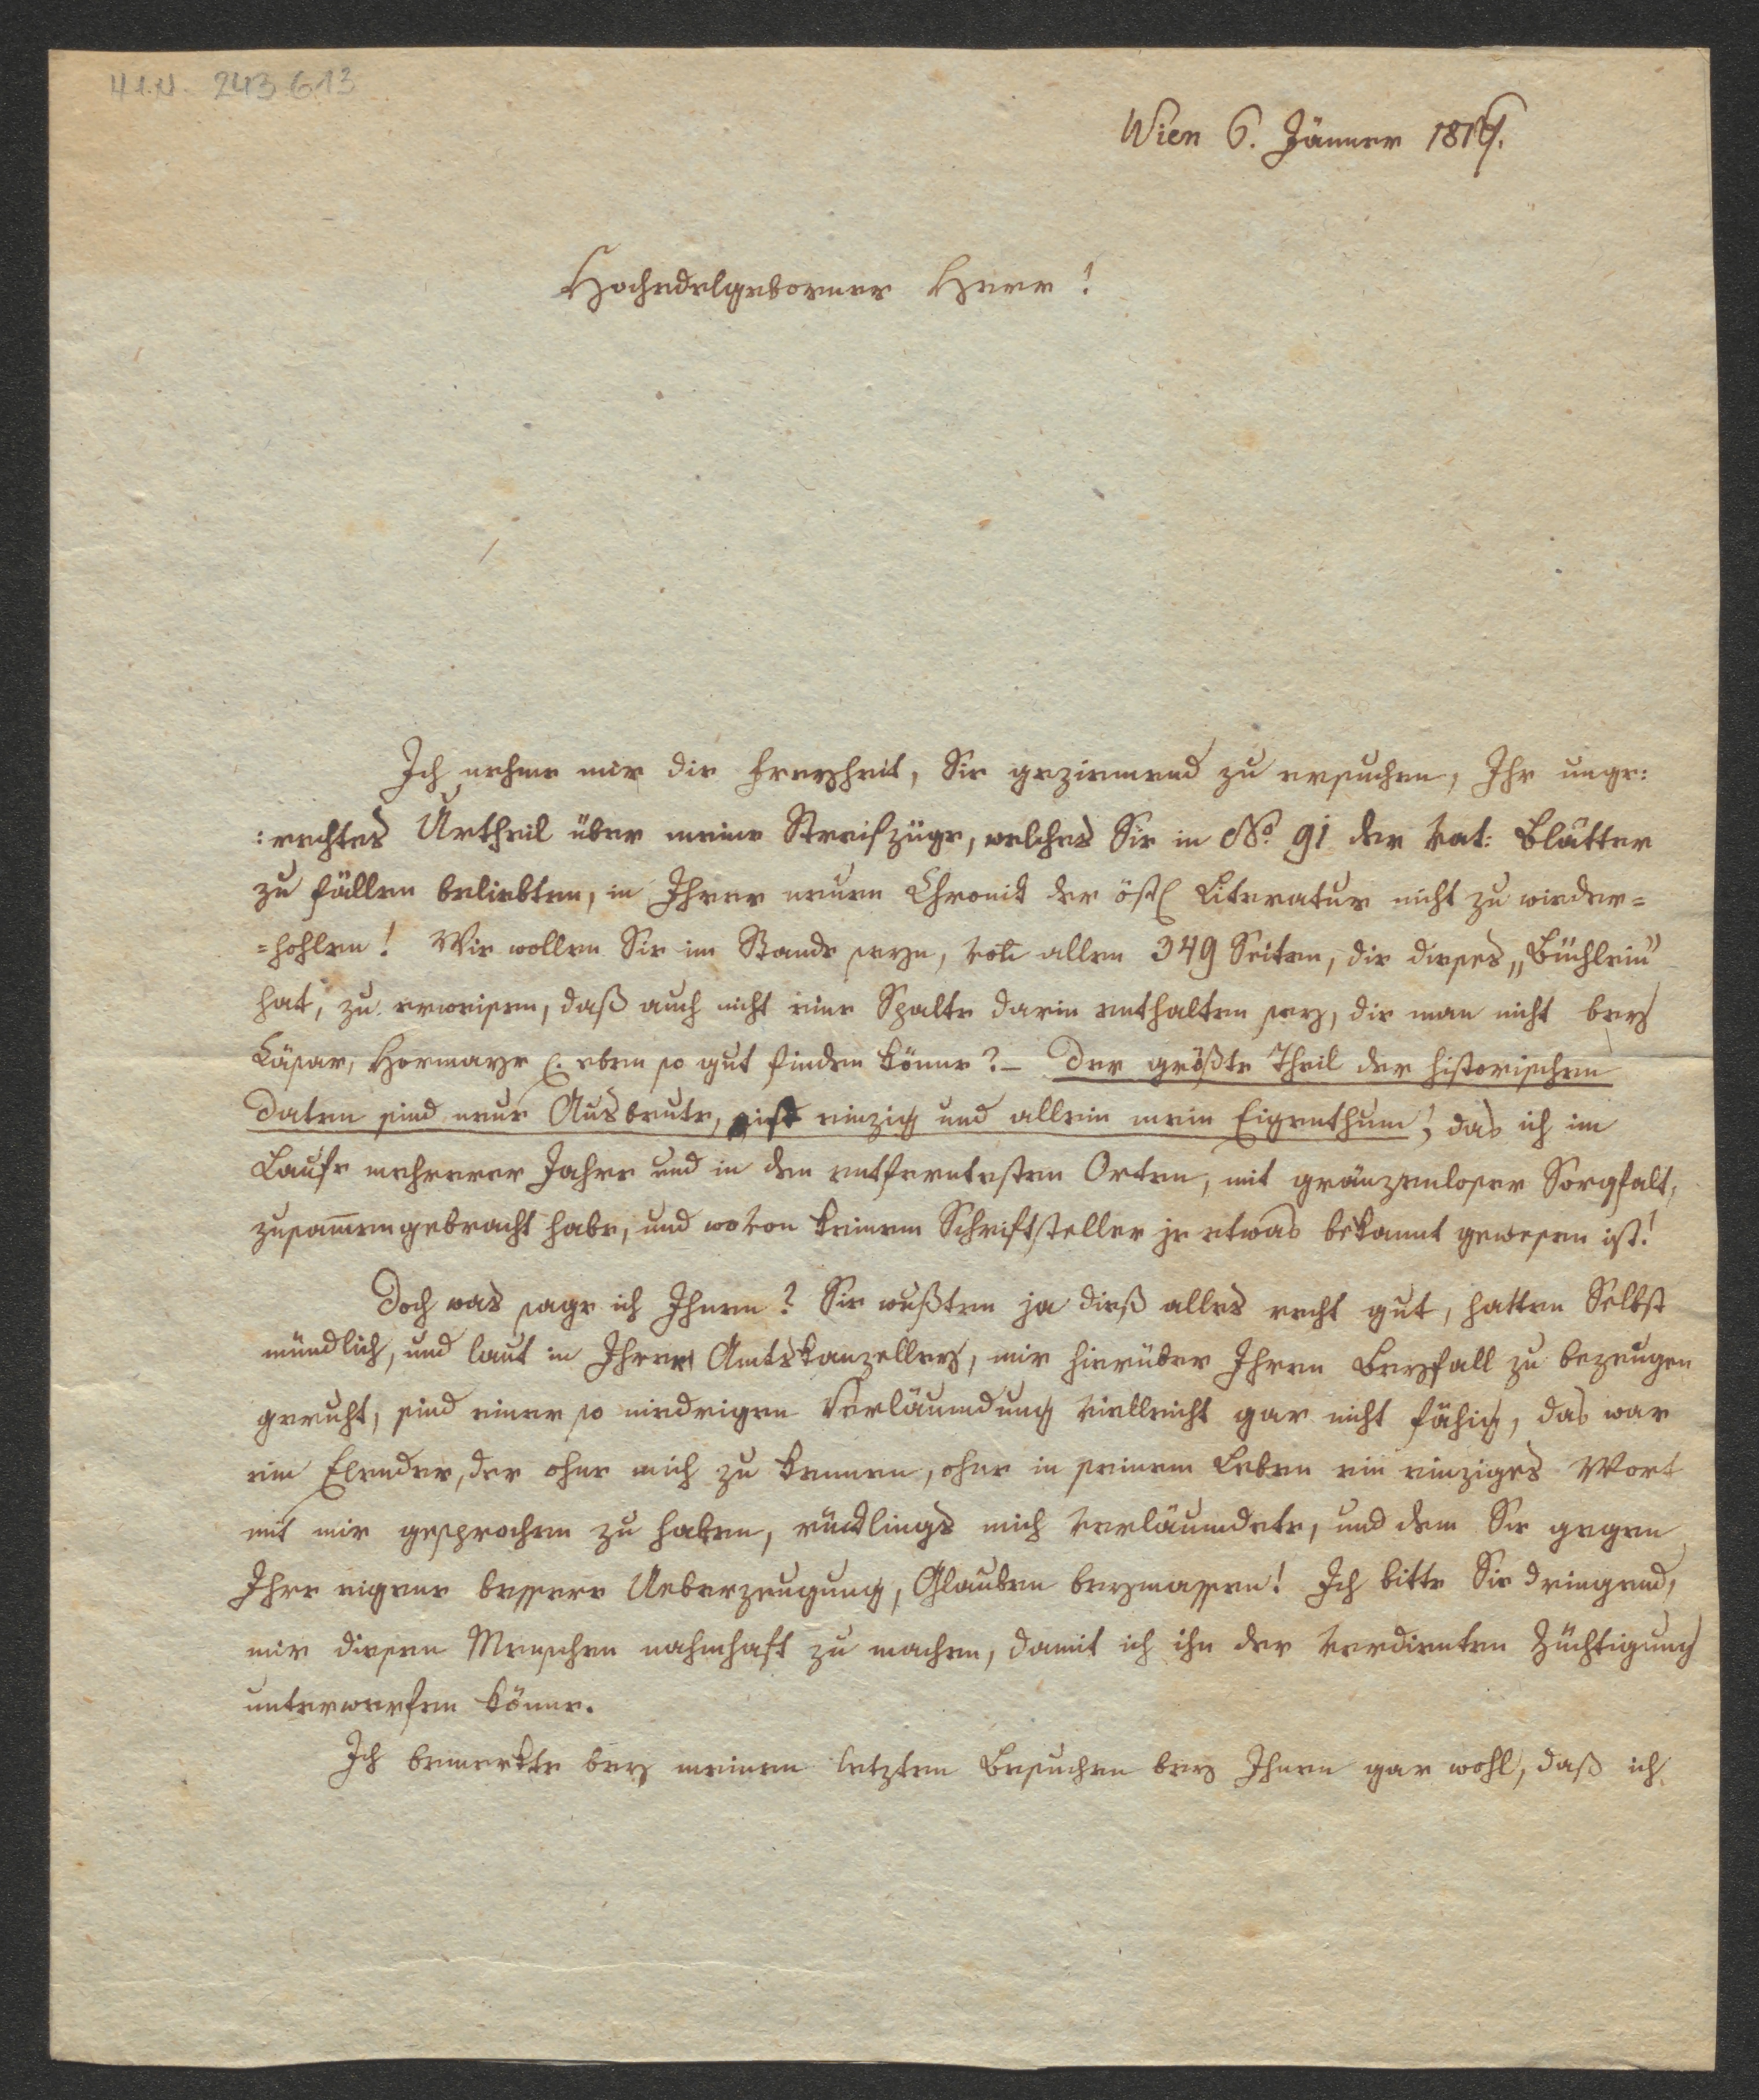 H.I.N. 243.613
Wien 6. Jänner 1816.
Hochedelgeborner Herr!
Ich nehme mir die Freyheit, Sie geziemend zu ersuchen, Ihr unge:
:rechtes Urtheil über meine Streifzüge, welches Sie in No. 91 der vat: Blätter
zu fällen beliebten, in Ihrer neuen Chronik der östl Literatur nicht zu wieder=
=hohlen! Wie wollen Sie im Stande seyn, von allen 349 Seiten, die dieses „Büchlein"
hat, zu erweisen, daß auch nicht eine Spalte darin enthalten sey, die man nicht bey
Cäsar, Hormayr c. eben so gut finden könne? – Der größte Theil der historischen
Daten sind neue Ausbeute, ist einzig und allein mein Eigenthum!, das ich im
Laufe mehrerer Jahre und in den entferntesten Orten, mit gränzenloser Sorgfalt,
zusam̅engebracht habe, und wovon keinem Schriftsteller je etwas bekannt gewesen ist!
Doch was sage ich Ihnen? Sie wußten ja dieß alles recht gut, hatten Selbst
mündlich, und laut in Ihrer Amtskanzelley, mir hierüber Ihren Beyfall zu bezeugen
geruht, sind einer so niedrigen Verläumdung vielleicht gar nicht fähig, das war
ein Elender, der ohne mich zu kennen, ohne in seinem Leben ein einziges Wort
mit mir gesprochen zu haben, rücklings mich verläumdete, und dem Sie gegen
Ihre eigene bessere Ueberzeugung, Glauben beymassen! Ich bitte Sie dringend,
mir diesen Menschen nahmhaft zu machen, damit ich ihn der verdienten Züchtigung
unterwerfen könne.
Ich bemerkte bey meinen letzten Besuchen bey Ihnen gar wohl, daß ich